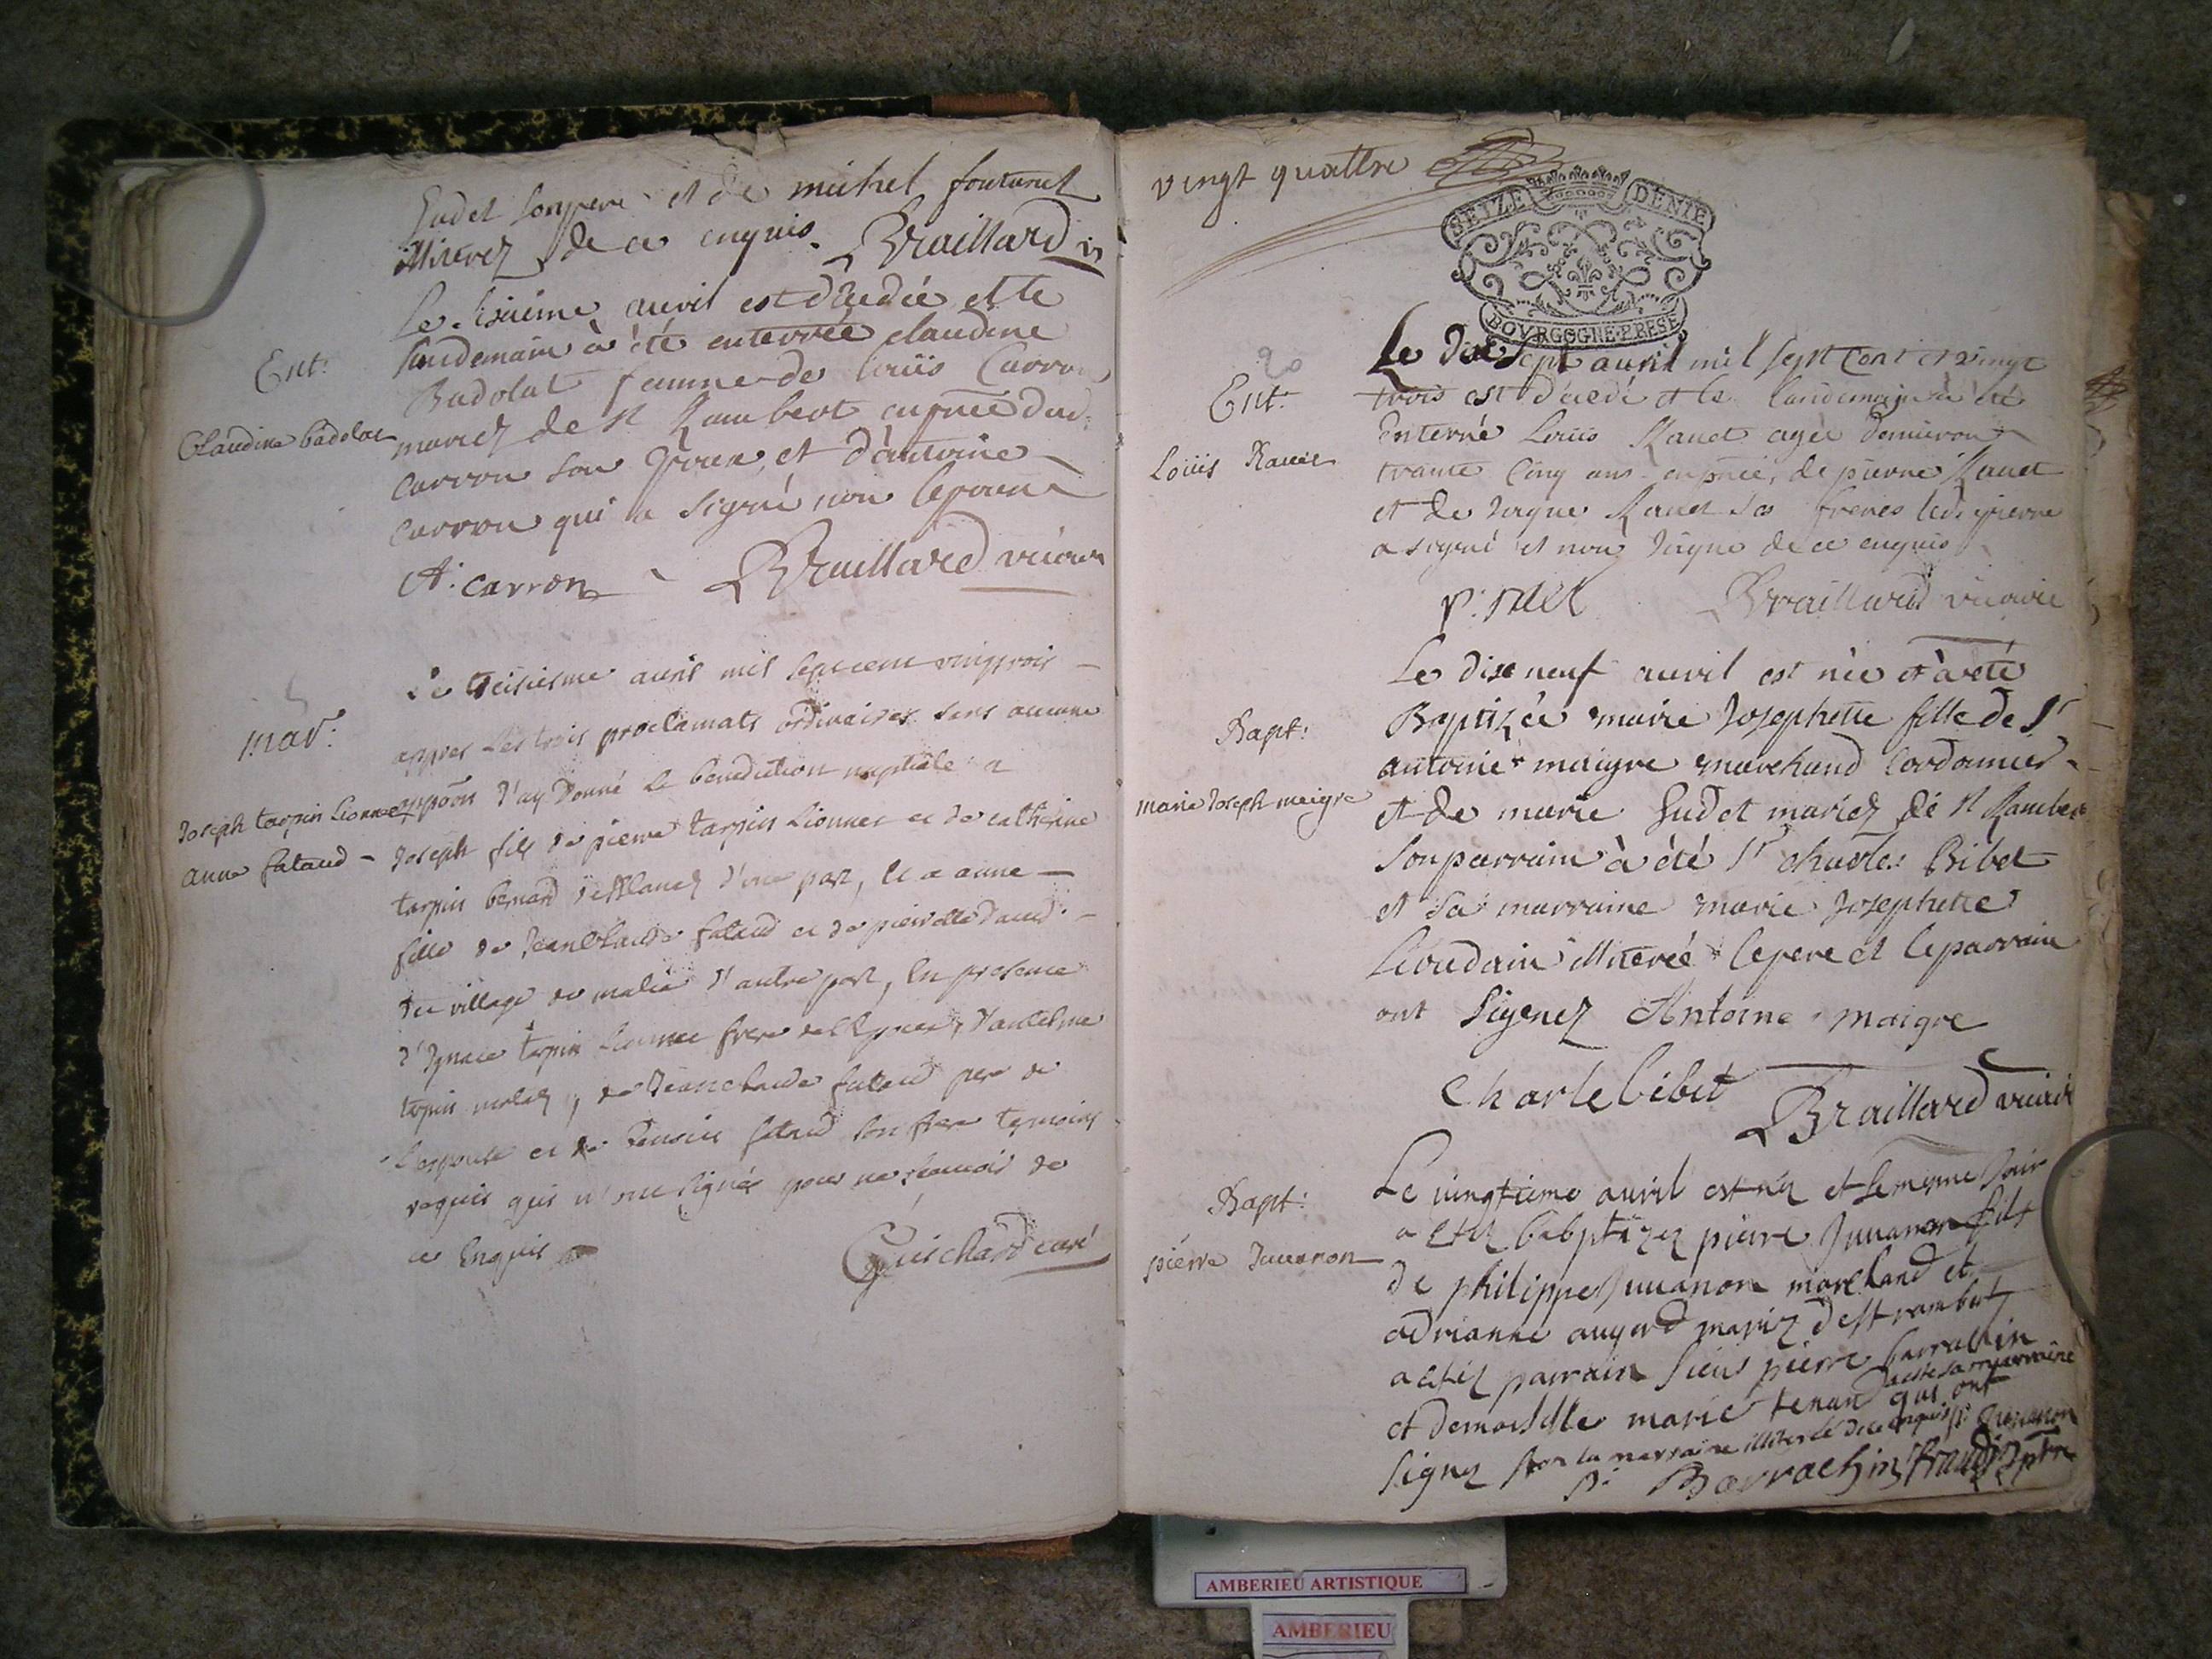 Gudet son pere et de michel fonturet
illiterez de ce enquis. Braillard v
Le sixième avril est décedée et le
lendemain à été enterrée claudine
Badolat femme de loüis Carron
mariez de st Rambert en pnce dud.
carron son et d'antoine
carron qui a signé non
A. carron Braillard vicaire
Ent.
Claudine badolat
Le treisiesme avril mil sept cent vingt trois
appres les trois proclamats ordinaires sans aucune
oppoon j'ay donné la benediction nuptiale a
joseph fils de pierre tarpin Lionnet et de catherine
tarpin benard d'une part, et a anne
fille de jean Claude fataud et de pierrette
du village de d'autre part, en presence
d'Ignace tarpin Lionnet frere de l'epoux, d'antelme
tarpin , de Jean claude fataud pere de
l'espouse et de fataud son frere temoins
requis qui n'ont signés pour ne scavoir de
ce Enquis
Guichard curé
mar.
Joseph tarpin Lionnet
anne fataud
vingt quattre
SEIZE DENIE
BOVRGOGNE·BRESE
20
Le dix sept avril mil sept cent et vingt
trois est décedé et le landemain à été
Enterré Loüis Ravet agée denviron
trante cinq ans en pnce, de pierre Ravet
et de Ravet ses freres led. pierre
a signé et non de ce enquis
Braillard vicaire
Ent.
Loüis Ravet
Le dix neuf avril est née et à été
Baptizée marie Josephette fille de Sr
antoine maigre marchand cordonnier
et de marie Gudet mariez de st Rambert
son parrain à été Sr charles Bibet
et sa marraine marie Josephette
Lioudain illiterée le pere et le parrain
ont signez Antoine maigre
Charle bibet Braillard vicaire
Bapt:
marie Joseph maigre
Le vingtieme avril est né et le mesme jour
a esté babptizez pierre Juuanon fils
de philippe Juuanon marchand et
adrianne aujard mariez de st rambert
a estez parrain sieur pierre barrachin
et demoiselle marie tenan a esté sa marraine qui ont
signez non la marraine illiteré de ce enquis p. Juuanon
p. Barrachin ptre
Bapt:
pierre Juuanon
AMBERIEU ARTISTIQUE
AMBERIEU